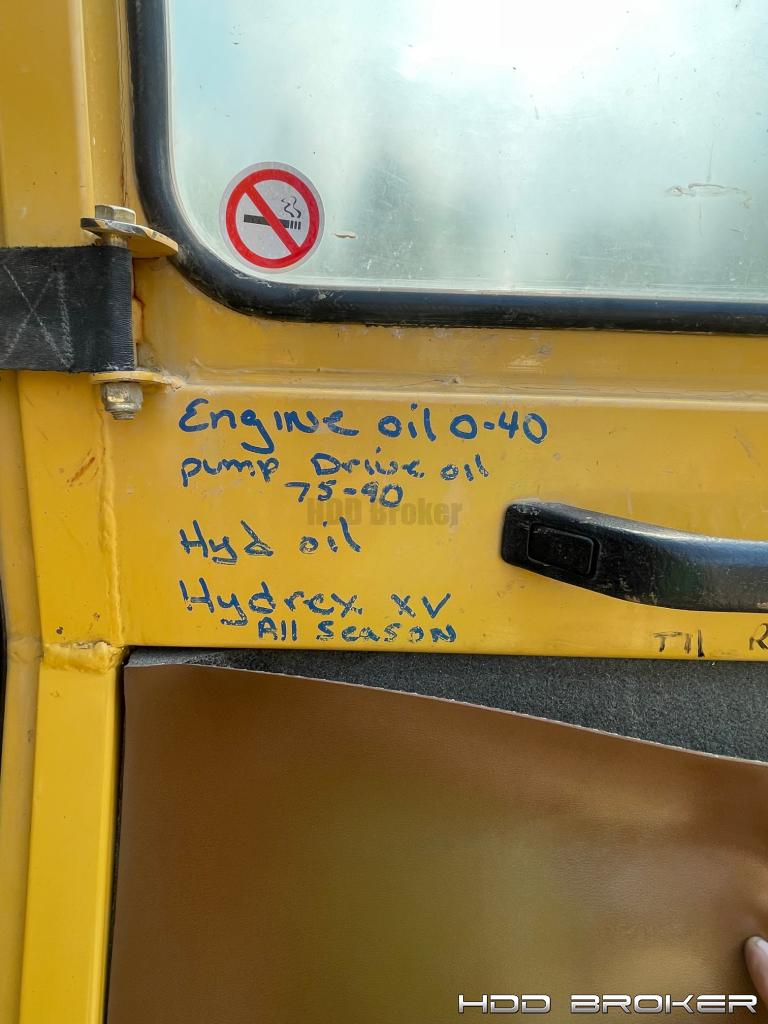 Engine oil 0-40
pump Drive oil
75-90
HDD Broker
Hyd oil
Hydrex XV
All Season
HDD BROKER